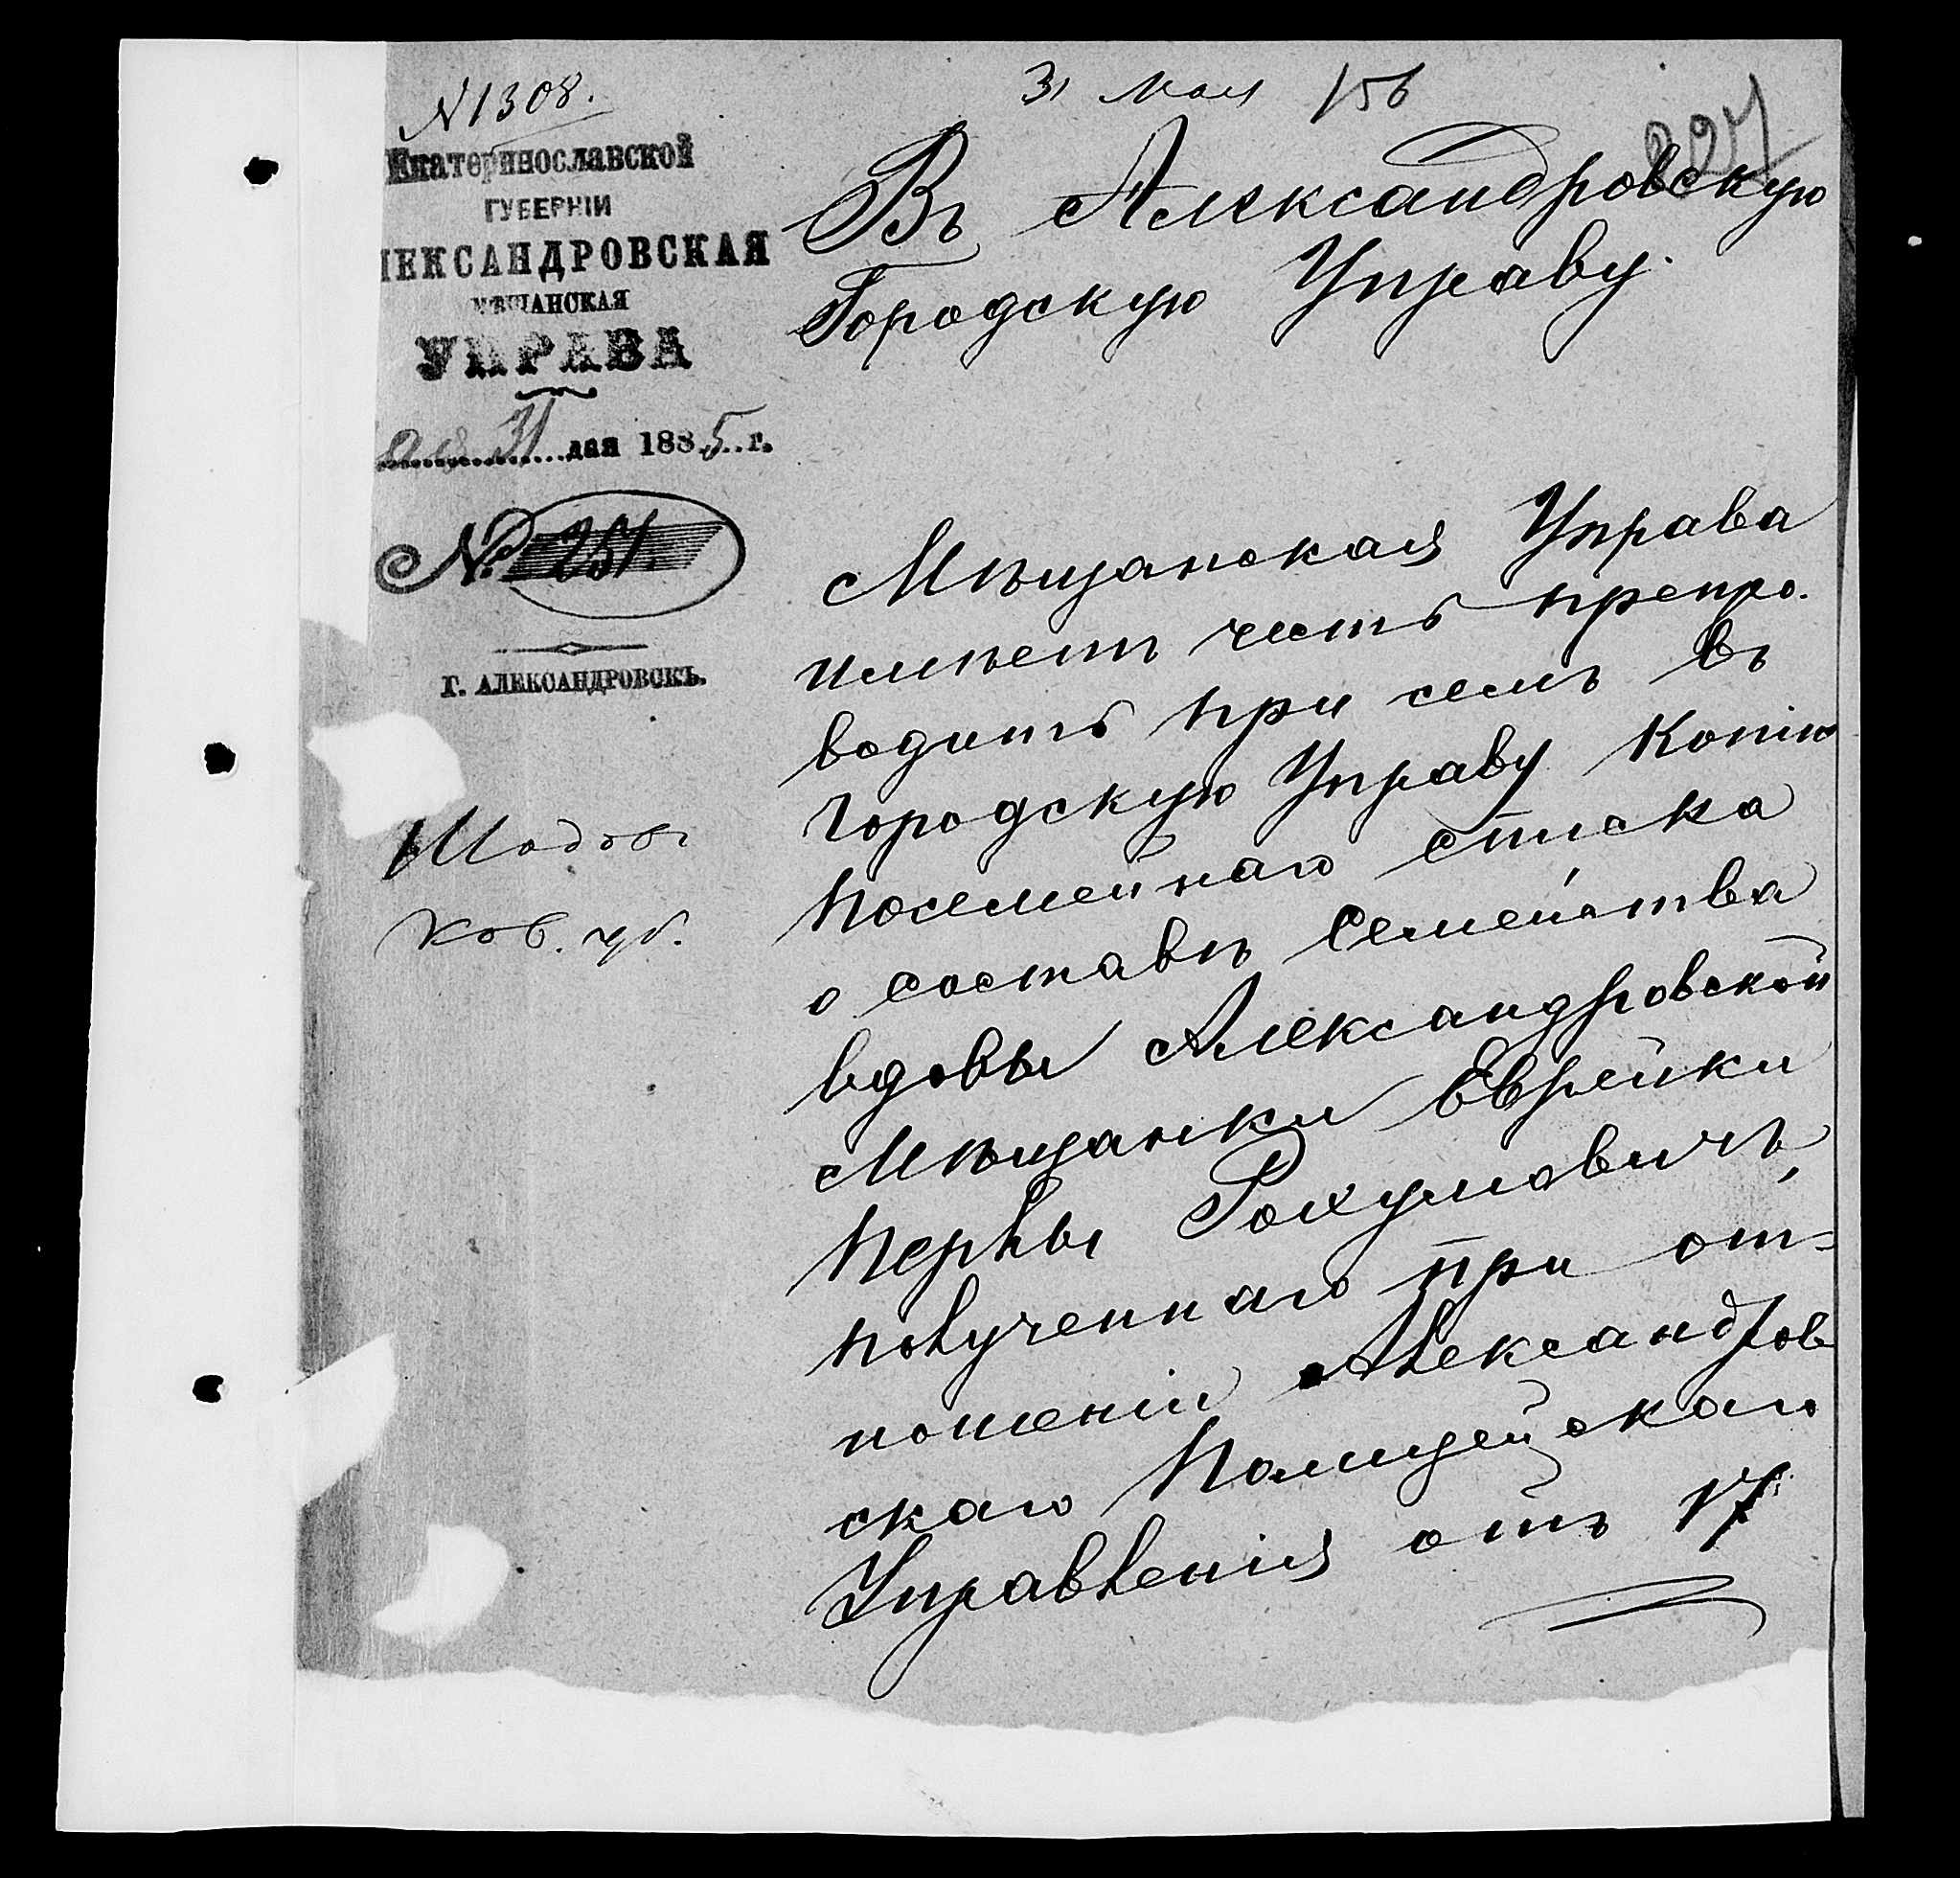 N1308.
Екатеринославской
ГУБЕРНІИ
ЛЕКСАНДРОВСКАЯ
МѢЩАНСКАЯ
УПРАВА
31 дая 1885 г.
№ 251.
Г. АЛЕКСАНДРОВСКЪ.
31 Мая 156
Въ Александровскую
Городскую Управу.
Мѣщанская Управа
имѣетъ честь препро-
водить при семъ въ
Городскую Управу Копію
посемейнаго списка
о составѣ Семейства
вдовы Александровской
Мѣщанки Еврейки
Перквы Рохумовичъ,
полученнаго при от=
ношеніи Александров
скаго Полицейскаго
Управленія отъ 17